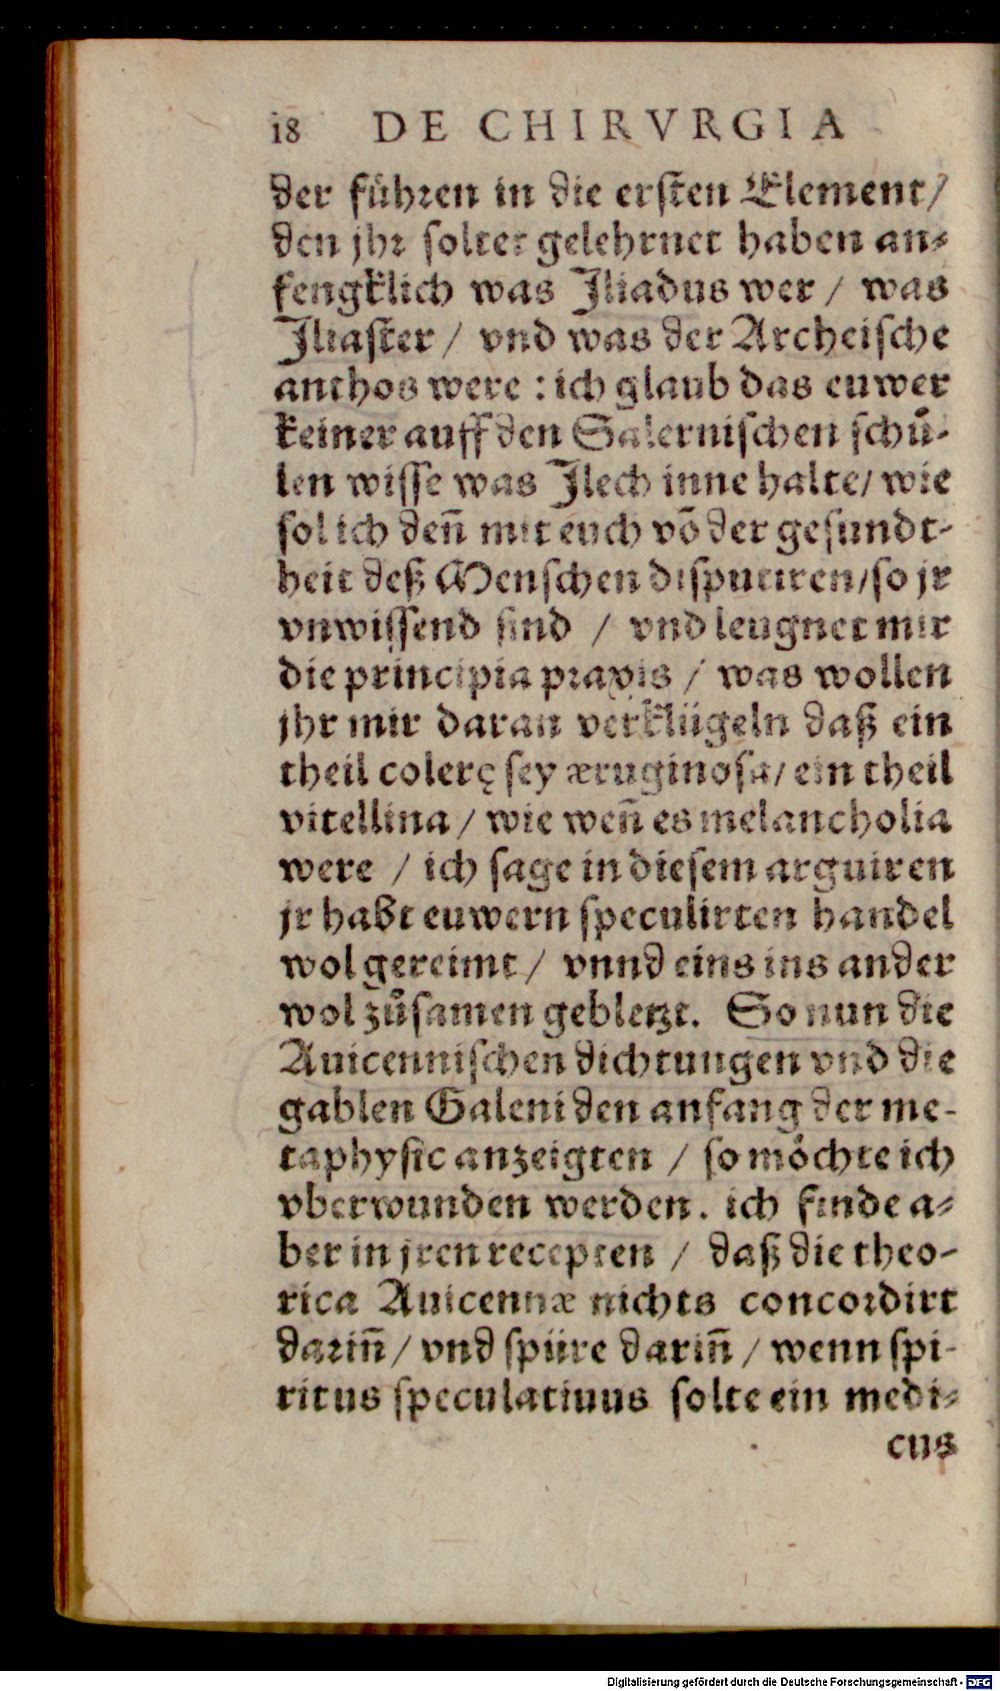 18 DE CHIRVRGIA
der führen in die ersten Element /
den jhr soltet gelehrnet haben an⸗
fengklich was Jliadus wer / was
Jliaster / vnd was der Archeische
anthos were : ich glaub das euwer
keiner auff den Salernischen schů⸗
len wisse was Jlech inne halte / wie
sol ich deñ mit euch võ der gesundt⸗
heit deß Menschen disputiren / so jr
vnwissend sind / vnd leugnet mir
die principia praxis / was wollen
jhr mir daran verklügeln daß ein
theil colerę sey æruginosa / ein theil
vitellina / wie weñ es melancholia
were / ich sage in diesem arguiren
jr habt euwern speculirten handel
wol gereimt / vnnd eins ins ander
wol zůsamen gebletzt. So nun die
Auicennischen dichtungen vnd die
gablen Galeni den anfang der me⸗
taphysic anzeigten / so möchte ich
vberwunden werden. ich finde a⸗
ber in jren recepten / daß die theo-
rica Auicennæ nichts concordirt
dariñ / vnd spüre dariñ / wenn spi-
ritus speculatiuus solte ein medi⸗
cus
Digitalisierung gefördert durch die Deutsche Forschungsgemeinschaft - DFG